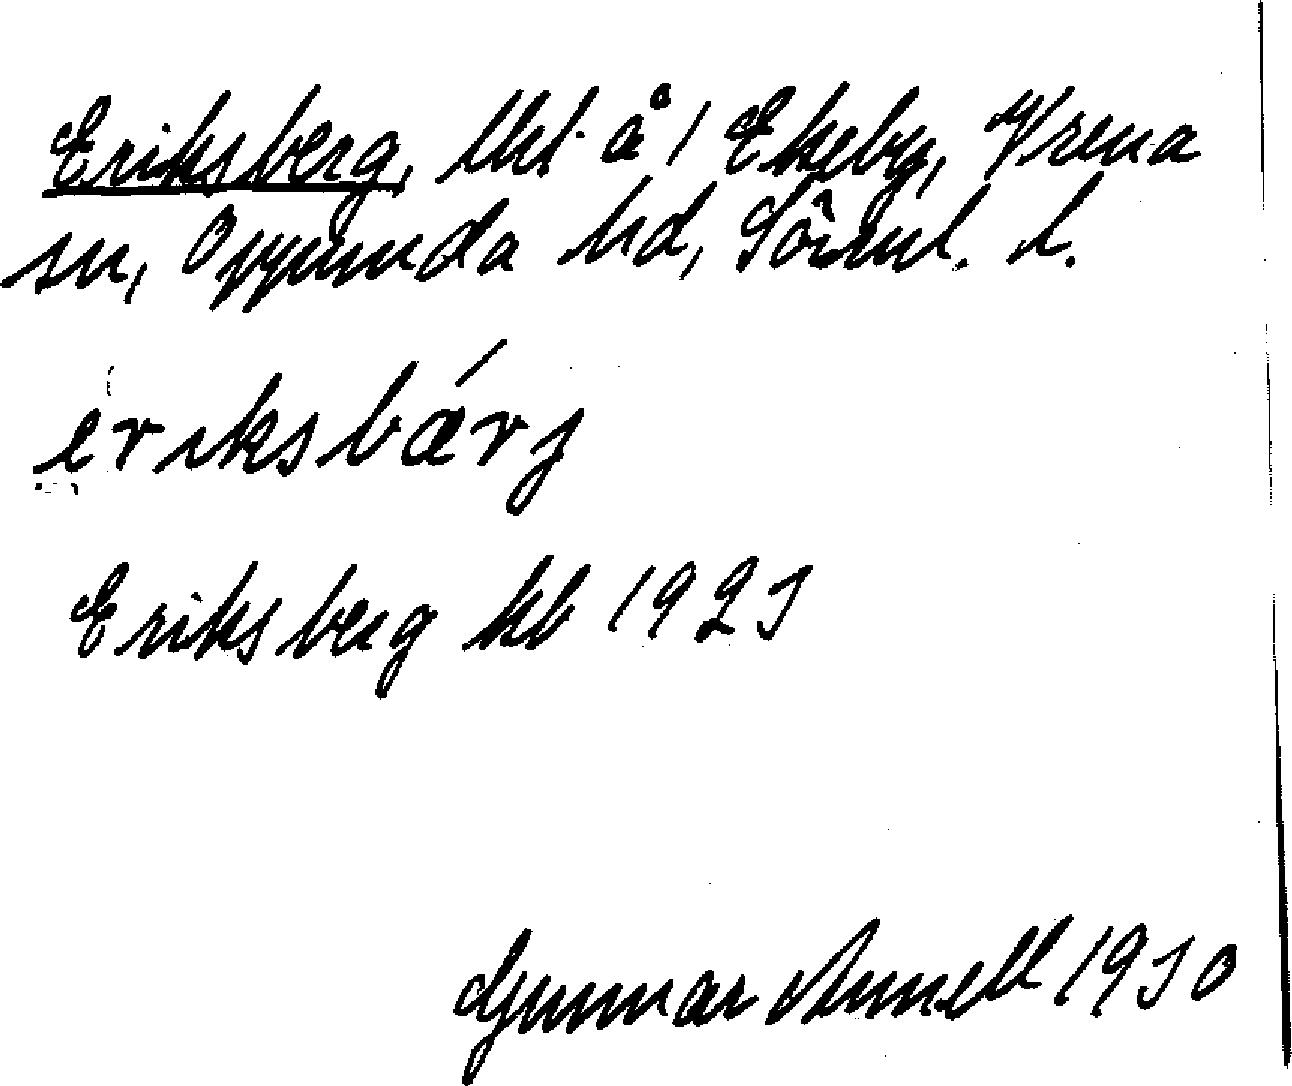 Eriksberg, lht å 1 Ekeby, Vrena
sn, Oppunda hd, Söderml. l.
èriksbǽrj
Eriksberg kb 1925
Gunnar Annell 1930